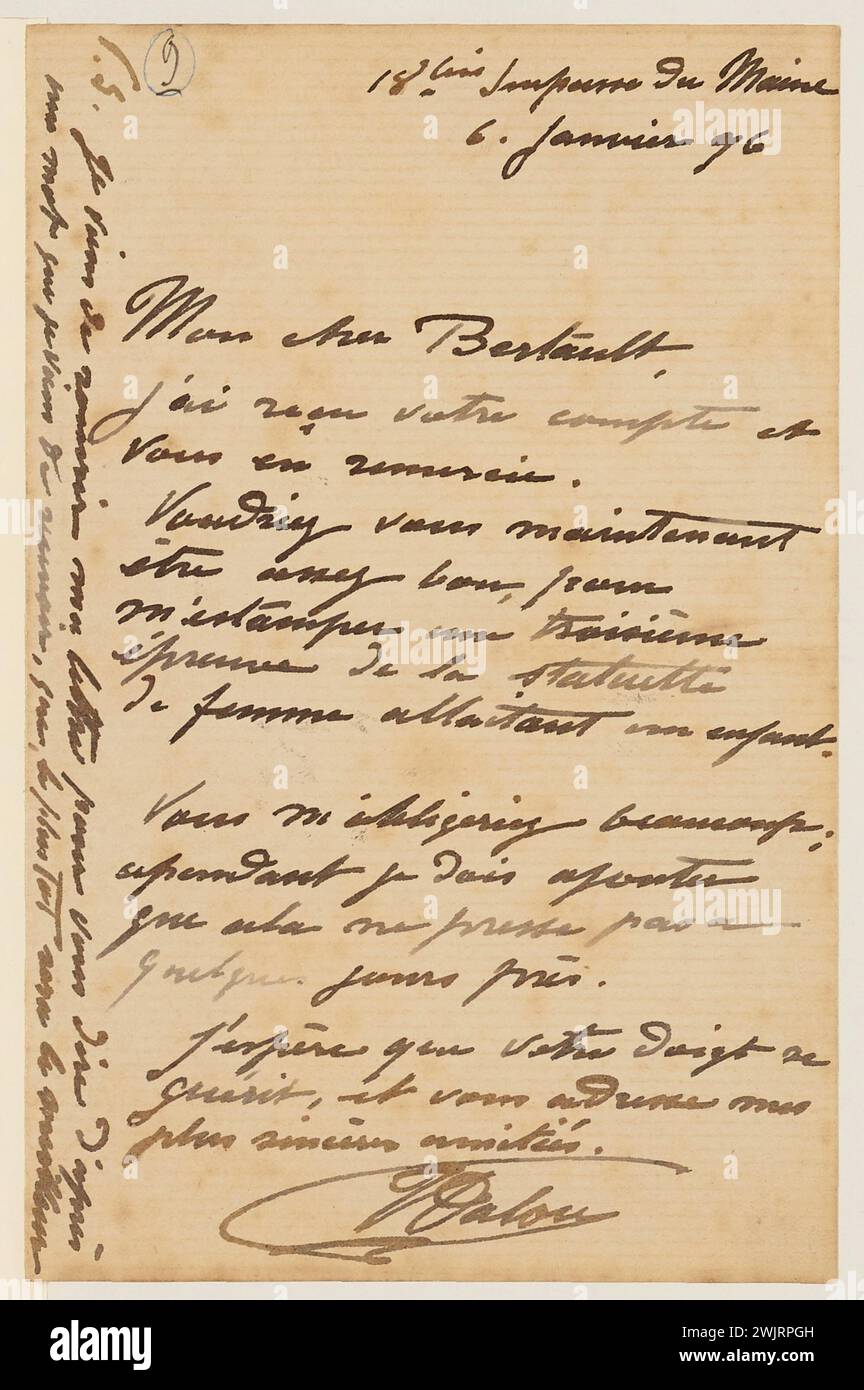 9
18 bis Impasse du Maine
6. Janvier 96
Mon cher Bertault,
J'ai reçu votre compte et
vous en remercie.
Voudriez vous maintenant
être assez bon, pour
m'estamper une troisième
épreuve de la statuette
de femme allaitant un enfant.
Vous m'obligeriez beaucoup;
cependant je dois ajouter
que cela ne presse pas à
quelques jours près.
J'espère que votre doigt se
guérit, et vous adresse mes
plus sincères amitiés.
Dalou
P.S. Je viens de rouvrir ma lettre pour vous dire d'après
une mot que je viens de recevoir, que, le plus tôt sera le meilleur
alamy
Image ID: 2WJRPGH
www.alamy.com